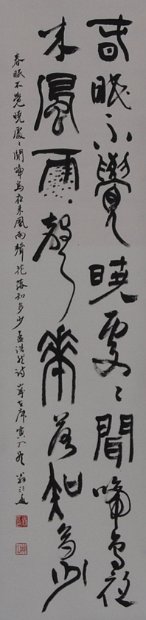 春眠不覺曉處〻聞啼鳥夜
來風雨聲華落知多少
春眠不覺曉處〻聞啼鳥夜來風雨聲花落知多少孟浩然詩